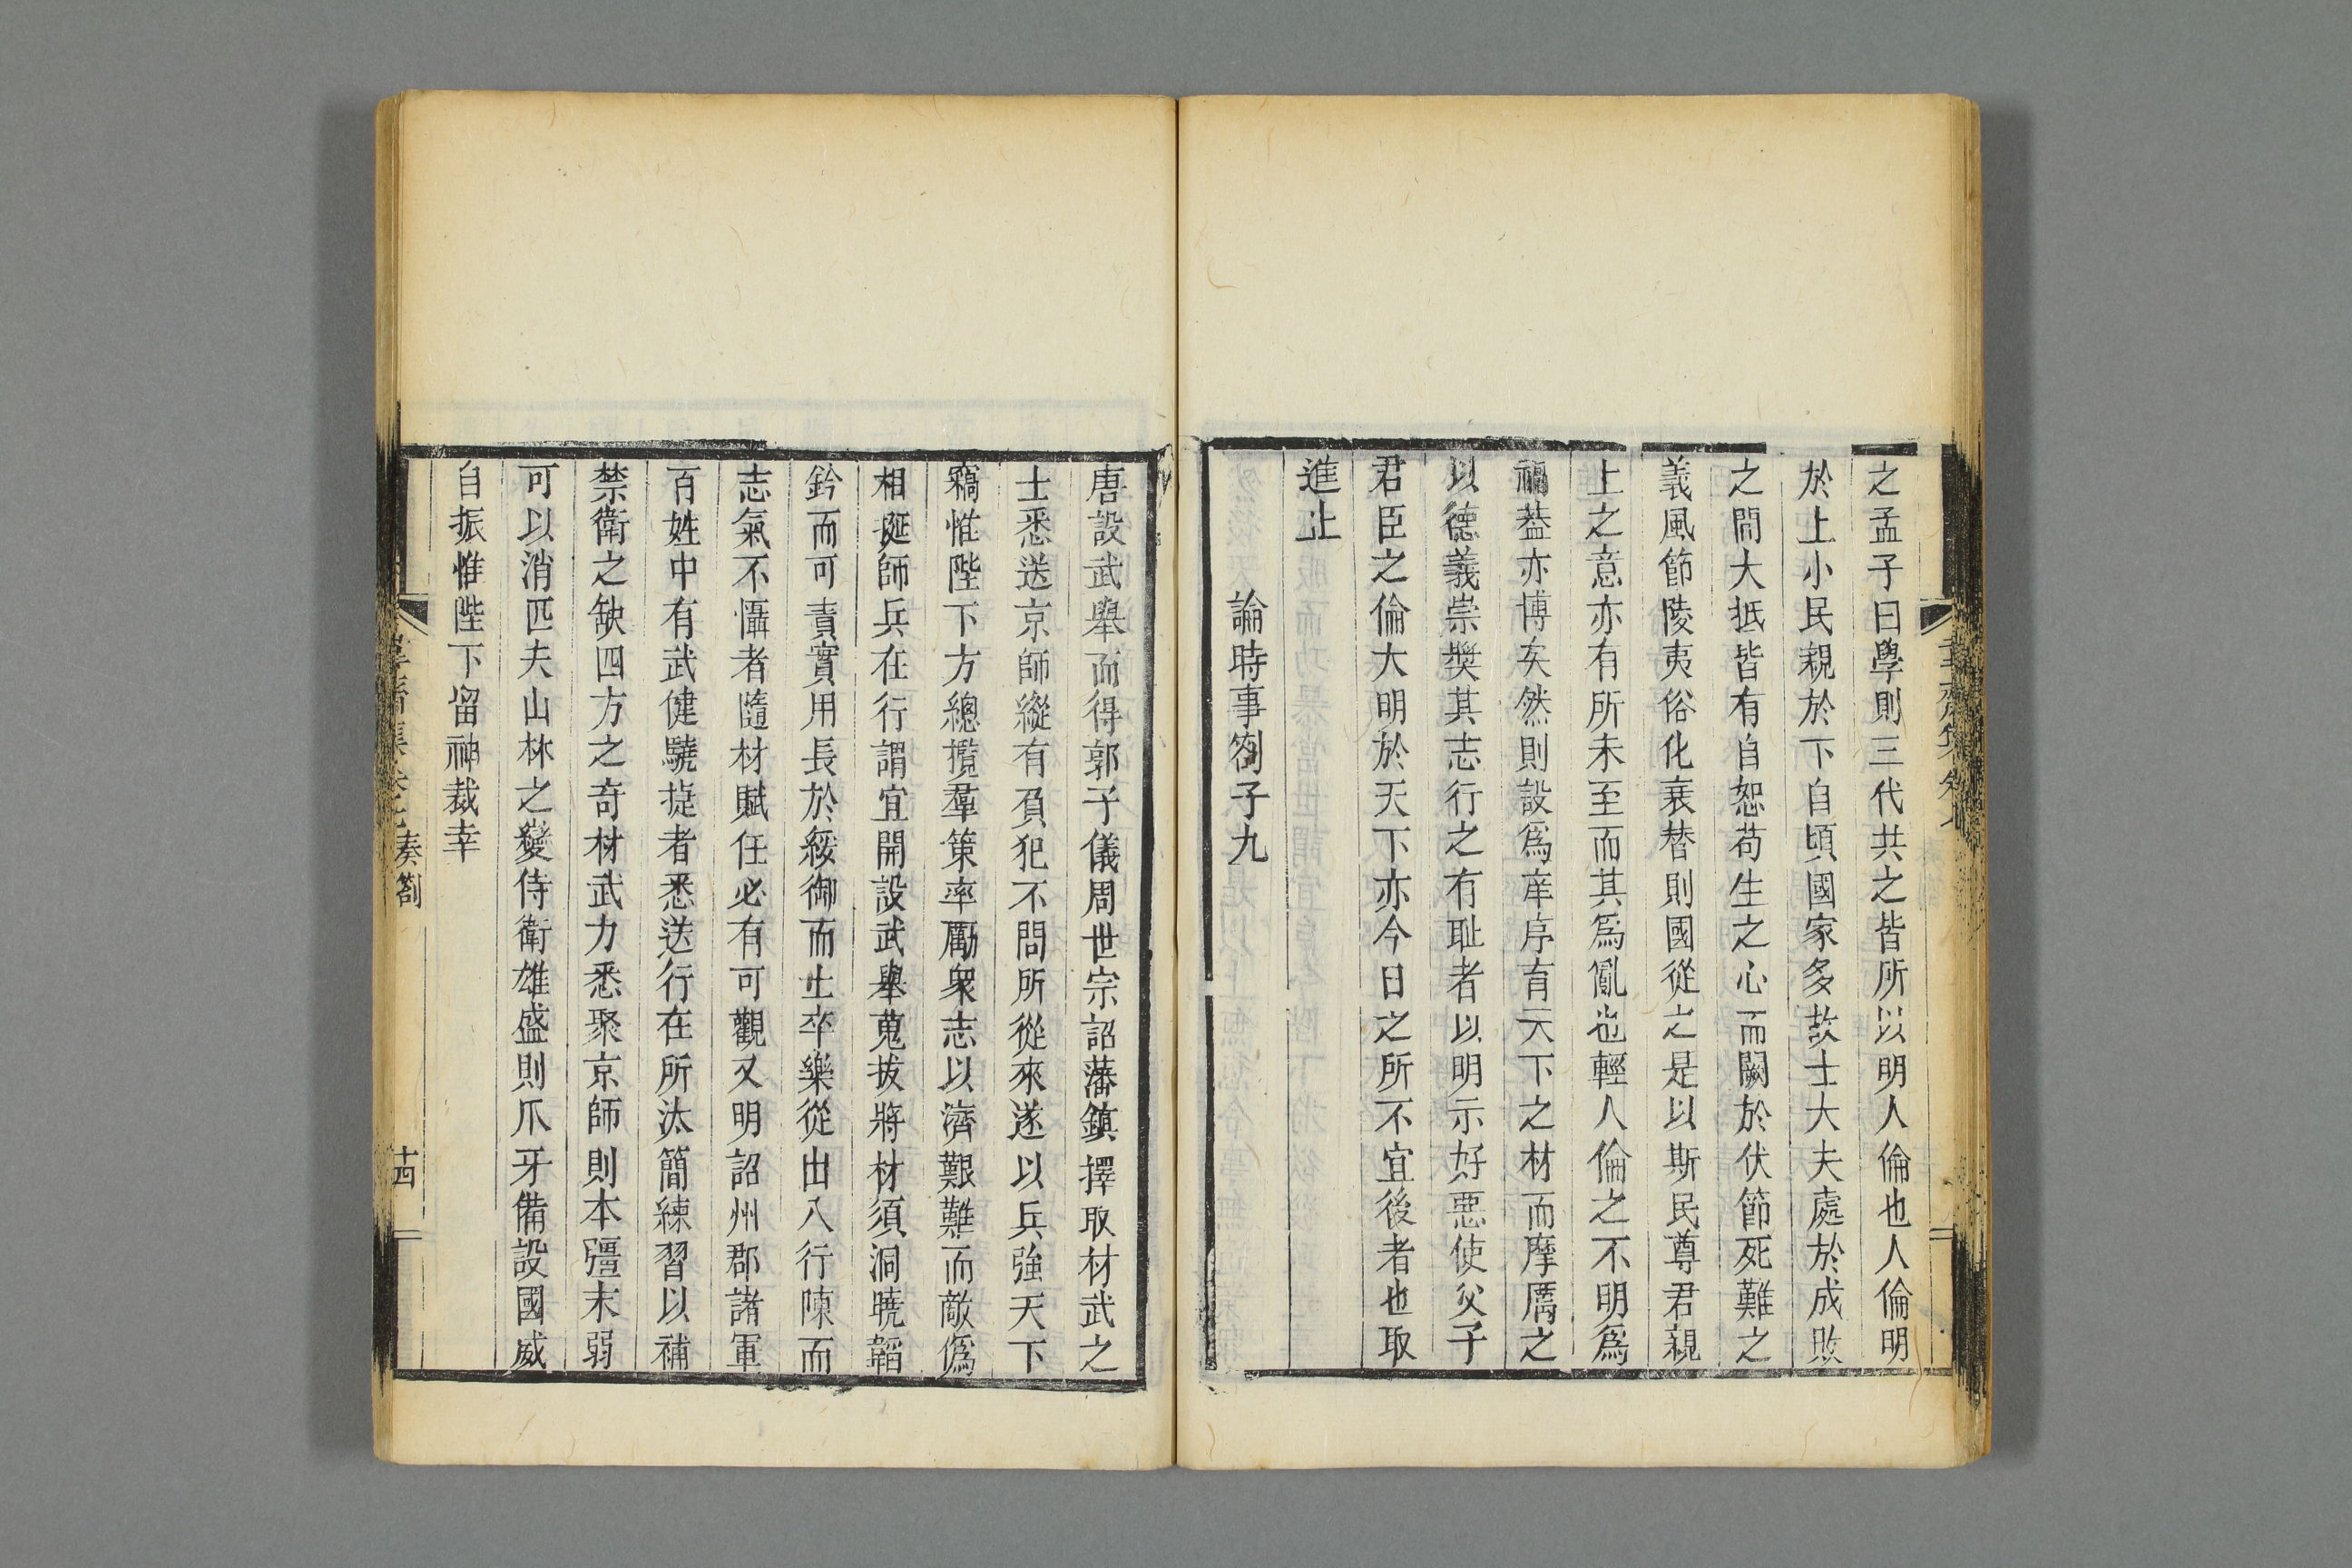 之孟子曰學則三代共之皆所以明人倫也人倫明
於上小民親於下自頃國家多故士大夫處於成敗
之間大抵皆有自恕苟生之心而闕於伏節死難之
義風節陵夷俗化衰替則國從之是以斯民尊君親
上之意亦有所未至而其爲亂也輕人倫之不明爲
禍葢亦博矣然則設爲庠序育天下之材而摩厲之
以德義崇奬其志行之有耻者以明示好悪使父子
君臣之倫大明於天下亦今日之所不宜後者也取
進止
論時事劄子九
唐設武舉而得郭子儀周世宗詔藩鎮擇取材武之
士悉送京師縱有負犯不問所從來遂以兵強天下
竊惟陛下方總攬羣策率勵衆志以濟艱難而敵僞
相挻師兵在行謂宜開設武舉蒐拔將材須洞曉韜
鈐而可責實用長於綏御而士卒樂從出入行陳而
志氣不懾者隨材賦任必有可觀又明詔州郡諸軍
百姓中有武健驍捷者悉送行在所汰簡練習以補
禁衛之缺四方之奇材武力悉聚京師則本彊末弱
可以消匹夫山林之變侍衛雄盛則爪牙備設國威
自振惟陛下留神裁幸
韋齋集卷七 奏劄 十四